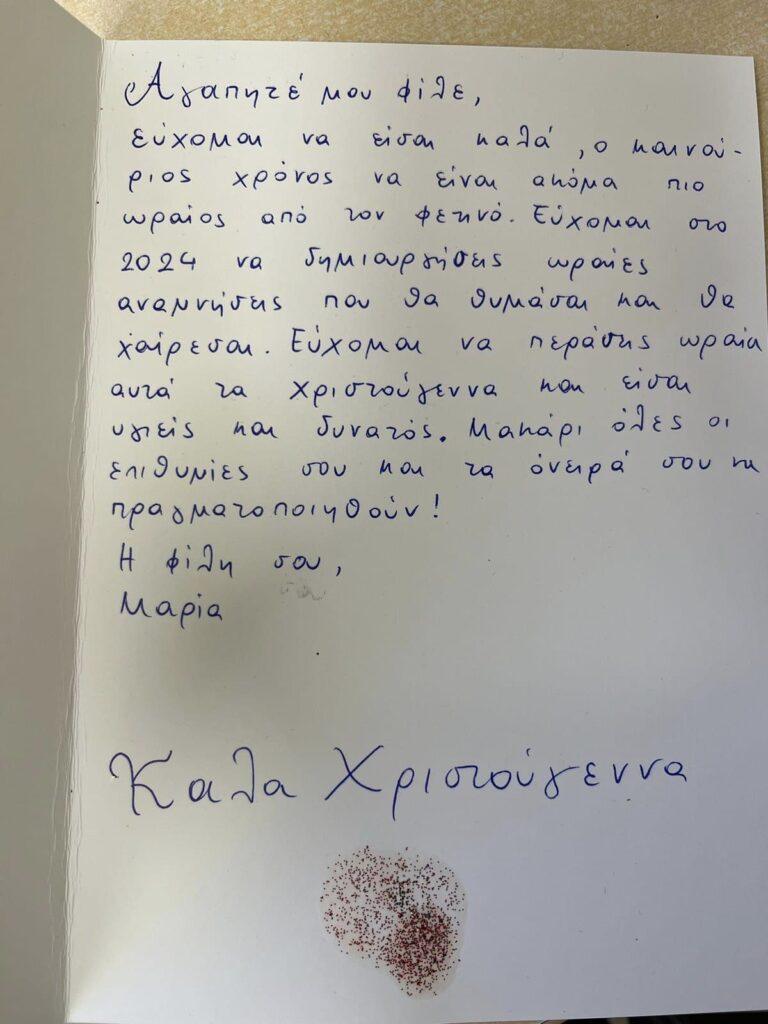 Αγαπητέ μου φίλε,
εύχομαι να είσαι καλά, ο καινού-
ριος χρόνος να είναι ακόμα πιο
ωραίος από τον φετινό. Εύχομαι στο
2024 να δημιουργήσεις ωραίες
αναμνήσεις που θα θυμάσαι και θα
χαίρεσαι. Εύχομαι να περάσεις ωραία
αυτά τα Χριστούγεννα και είσαι
υγιείς και δυνατός. Μακάρι όλες οι
επιθυμίες σου και τα όνειρά σου να
πραγματοποιηθούν!
Η φίλη σου,
Μαρία
Καλα Χριστούγεννα